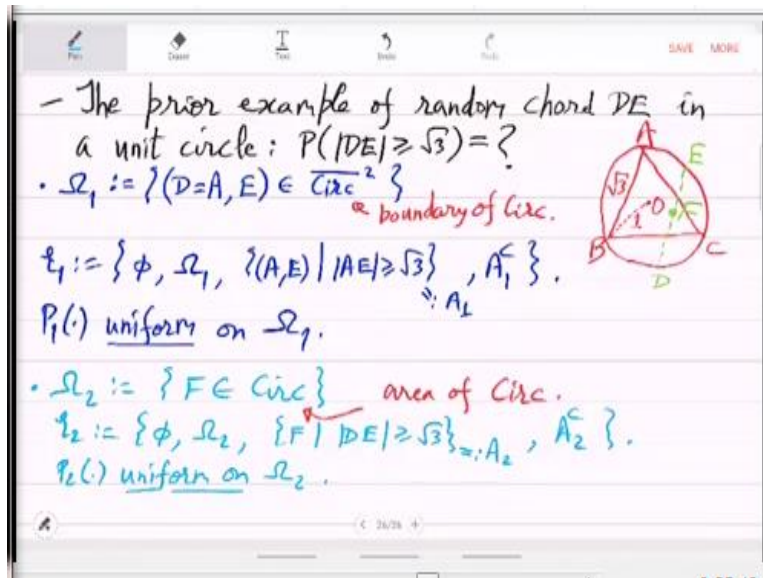 Pen Eraser Text Undo Redo SAVE MORE
- The prior example of random chord DE in
a unit circle : P(|DE| ≥ √3) = ?
· Ω₁ := {(D=A, E) ∈ Circ²}
boundary of Circ.
ξ₁ := {ϕ, Ω₁, {(A,E) | |AE| ≥ √3} =: A₁, A₁ᶜ}.
P₁(·) uniform on Ω₁.
· Ω₂ := {F ∈ Circ} area of Circ.
ξ₂ := {ϕ, Ω₂, {F | |DE| ≥ √3} =: A₂, A₂ᶜ}.
P₂(·) uniform on Ω₂.
A
E
√3
O
F
1
B
C
D
< 26/26 +